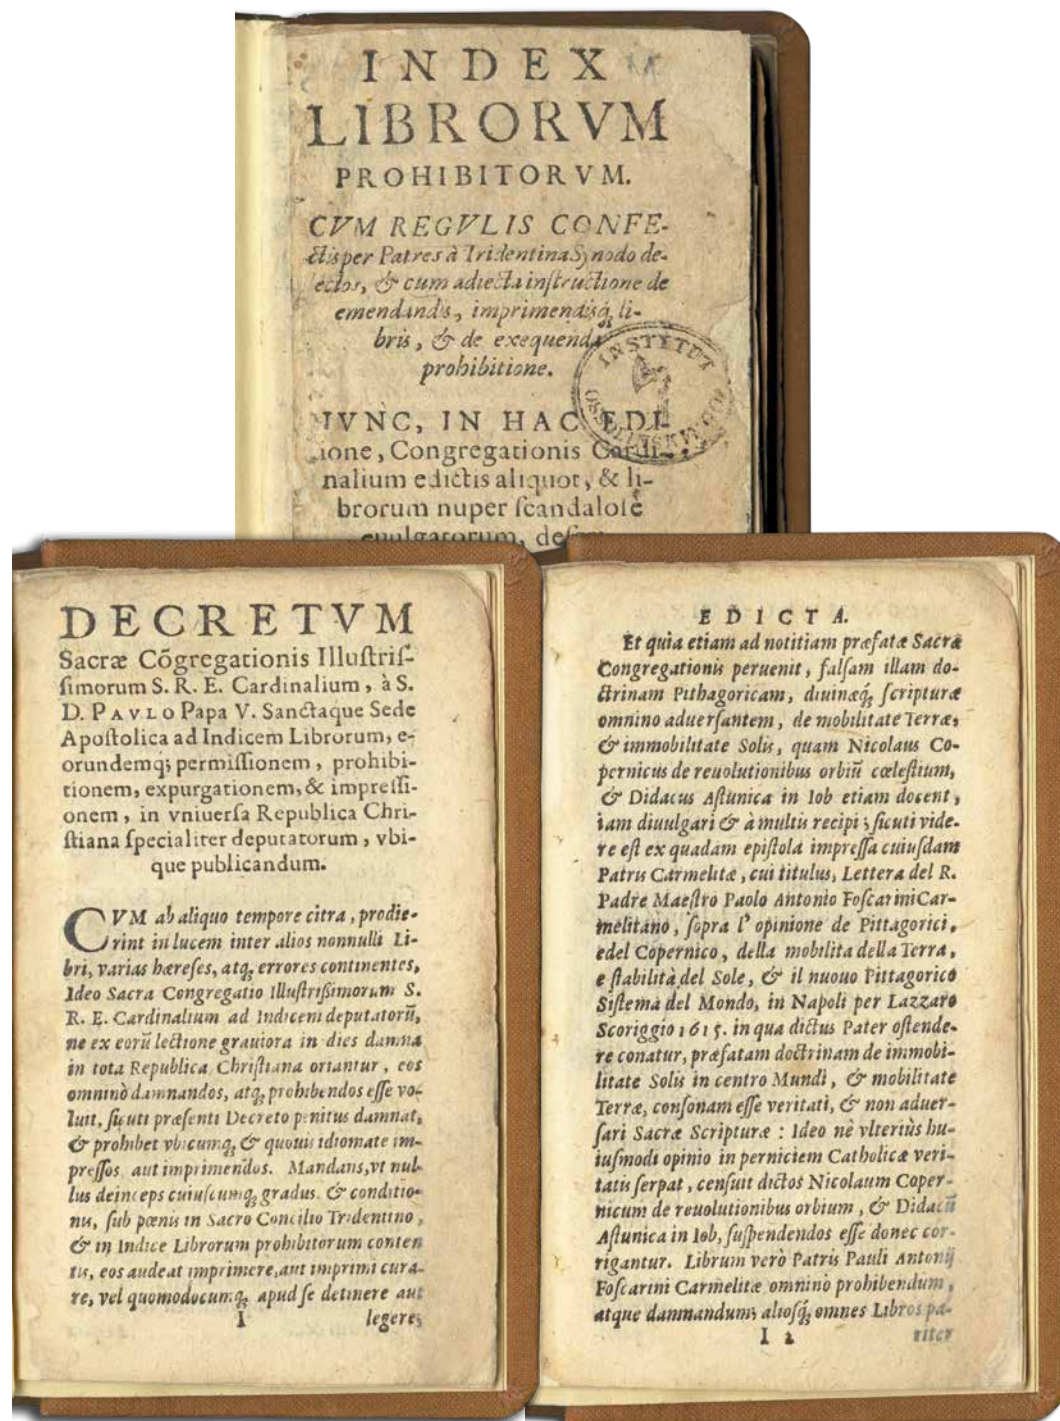 INDEX
LIBRORVM
PROHIBITORVM.
CVM REGVLIS CONFE-
ctis per Patres à Tridentina Synodo de-
lectos, & cum adiecta inſtructione de
emendandis, imprimendisq; li-
bris, & de exequenda
prohibitione.
INSTYTUT
OSSOLIŃSKICH
NVNC, IN HAC EDI-
tione, Congregationis Cardi-
nalium edictis aliquot, & li-
brorum nuper ſcandaloſè
euulgatorum,
DECRETVM
Sacræ Cõgregationis Illuſtriſ-
ſimorum S. R. E. Cardinalium, à S.
D. PAVLO Papa V. Sanctaque Sede
Apoſtolica ad Indicem Librorum, e-
orundemq; permiſſionem, prohibi-
tionem, expurgationem, & impreſſi-
onem, in vniuerſa Republica Chri-
ſtiana ſpecialiter deputatorum, vbi-
que publicandum.
CVM ab aliquo tempore citra, prodie-
rint in lucem inter alios nonnulli Li-
bri, varias hæreſes, atq; errores continentes,
Ideo Sacra Congregatio Illuſtriſſimorum S.
R. E. Cardinalium ad Indicem deputatorũ,
ne ex eorũ lectione grauiora in dies damna
in tota Republica Chriſtiana oriantur, eos
omninò damnandos, atq; prohibendos eſſe vo-
luit, ſicuti præſenti Decreto penitus damnat,
& prohibet vbicumq; & quouis idiomate im-
preſſos aut imprimendos. Mandans, vt nul-
lus deinceps cuiuſcumq; gradus & conditio-
nis, ſub pœnis in Sacro Concilio Tridentino,
& in Indice Librorum prohibitorum conten
tis, eos audeat imprimere, aut imprimi cura-
re, vel quomodocumq; apud ſe detinere aut
I legere;
EDICTA.
Et quia etiam ad notitiam præfatæ Sacræ
Congregationis peruenit, falſam illam do-
ctrinam Pithagoricam, diuinæq; ſcripturæ
omnino aduerſantem, de mobilitate Terræ,
& immobilitate Solis, quam Nicolaus Co-
pernicus de reuolutionibus orbiũ cœleſtium,
& Didacus Aſtunica in Iob etiam docent,
iam diuulgari & à multis recipi; ſicuti vide-
re eſt ex quadam epiſtola impreſſa cuiuſdam
Patris Carmelitæ, cui titulus, Lettera del R.
Padre Maeſtro Paolo Antonio Foſcarini Car-
melitano, ſopra l' opinione de Pittagorici,
e del Copernico, della mobilita della Terra,
e ſtabilità del Sole, & il nuouo Pittagorico
Siſtema del Mondo, in Napoli per Lazzaro
Scoriggio 1615. in qua dictus Pater oſtende-
re conatur, præfatam doctrinam de immobi-
litate Solis in centro Mundi, & mobilitate
Terræ, conſonam eſſe veritati, & non aduer-
ſari Sacræ Scripturæ: Ideo nè vlteriùs hu-
iuſmodi opinio in perniciem Catholicæ veri-
tatis ſerpat, cenſuit dictos Nicolaum Coper-
nicum de reuolutionibus orbium, & Didacũ
Aſtunica in Iob, ſuſpendendos eſſe donec cor-
rigantur. Librum verò Patris Pauli Antonij
Foſcarini Carmelitæ omninò prohibendum,
atque damnandum; alioſq; omnes Libros pa-
I 2 riter